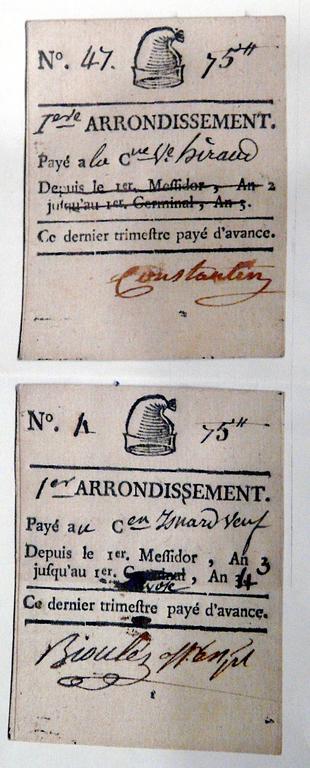 No. 47. 75tt
1ere ARRONDISSEMENT.
Payé a la Cne Ve hiraud
Depuis le 1er. Messidor, An 2
jusqu'au 1er. Germinal, An 3.
Ce dernier trimestre payé d'avance.
Constantin
No. 1 75tt
1er ARRONDISSEMENT.
Payé au Cen Isnard
Depuis le 1er. Messidor, An 3
jusqu'au 1er. Germinal, An 4
Ce dernier trimestre payé d'avance.